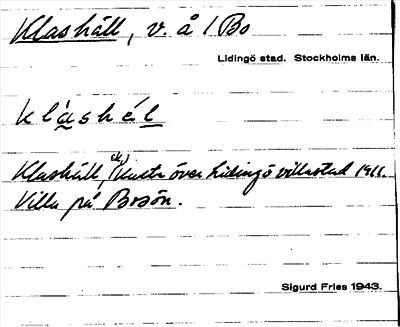 Klashäll, v. å 1 Bo
Lidingö stad. Stockholms län.
klàshél
Klashäll, Karta över Lidingö villastad 1911.
Villa på Bosön.
Sigurd Fries 1943.